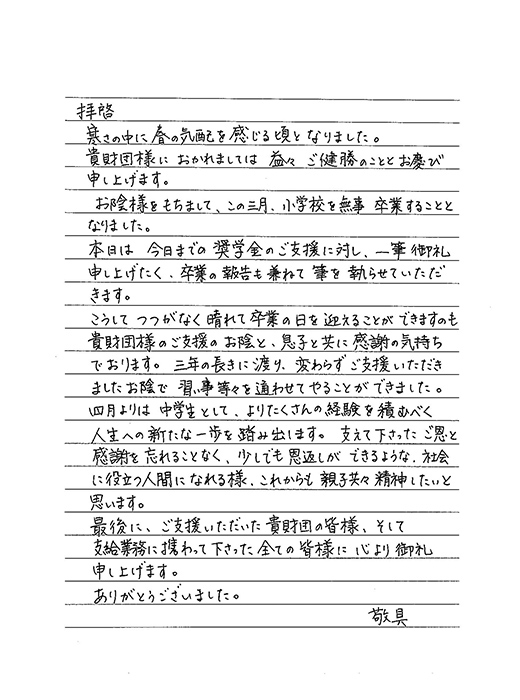 拝啓
寒さの中に春の気配を感じる頃となりました。
貴財団様におかれましては 益々 ご健勝のこととお慶び
申し上げます。
お陰様をもちまして、この三月、小学校を無事 卒業することと
なりました。
本日は 今日までの 奨学金のご支援に対し、一筆 御礼
申し上げたく、卒業の報告も兼ねて 筆を執らせていただ
きます。
こうして つつがなく 晴れて卒業の日を迎えることが できますのも
貴財団様のご支援のお陰と、息子と共に 感謝の気持ち
でおります。 三年の長きに渡り、変わらずご支援いただき
ましたお陰で 習い事等々を通わせてやることができました。
四月よりは 中学生として、よりたくさんの経験を積むべく
人生への新たな一歩を踏み出します。 支えて下さったご恩と
感謝を忘れることなく、少しでも恩返しができるような、社会
に役立つ人間になれる様、これからも 親子共々 精神したいと
思います。
最後に、ご支援いただいた貴財団の皆様、そして
支給業務に携わって下さった全ての皆様に 心より御礼
申し上げます。
ありがとうございました。
敬具